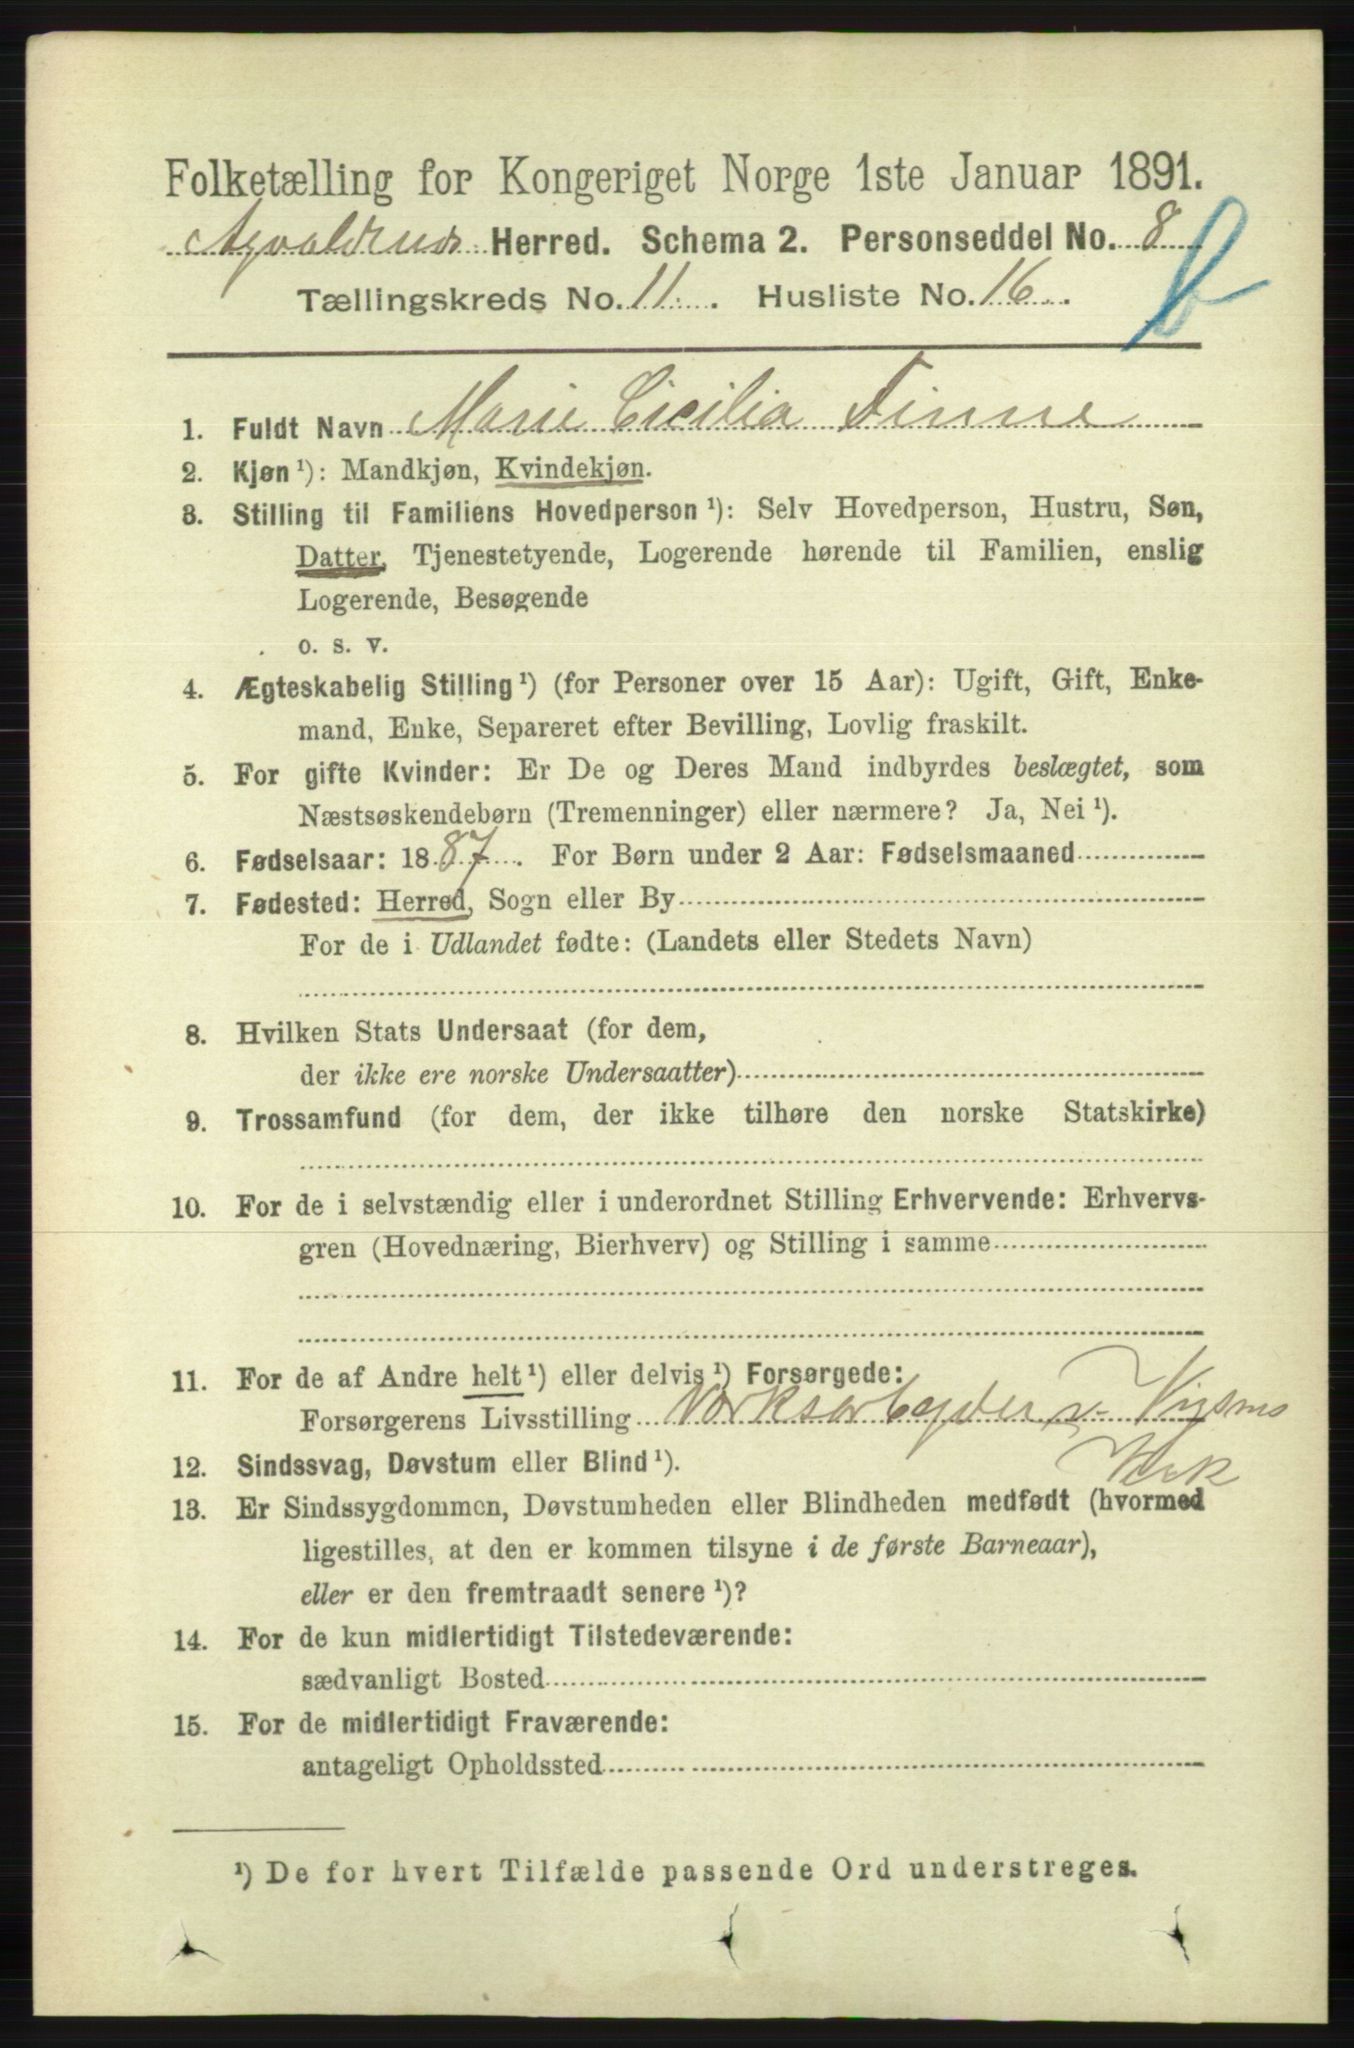 Folketælling for Kongeriget Norge 1ste Januar 1891.
Herred. Schema 2. Personseddel No. 8
Tællingskreds No. 11. Husliste No. 16.
1. Fuldt Navn Marie Cicilia Finne
2. Kjøn ¹): Mandkjøn, Kvindekjøn.
3. Stilling til Familiens Hovedperson ¹): Selv Hovedperson, Hustru, Søn,
Datter, Tjenestetyende, Logerende hørende til Familien, enslig
Logerende, Besøgende
o. s. v.
4. Ægteskabelig Stilling ¹) (for Personer over 15 Aar): Ugift, Gift, Enke-
mand, Enke, Separeret efter Bevilling, Lovlig fraskilt.
5. For gifte Kvinder: Er De og Deres Mand indbyrdes beslægtet, som
Næstsøskendebørn (Tremenninger) eller nærmere? Ja, Nei ¹).
6. Fødselsaar: 1887. For Børn under 2 Aar: Fødselsmaaned
7. Fødested: Herred, Sogn eller By
For de i Udlandet fødte: (Landets eller Stedets Navn)
8. Hvilken Stats Undersaat (for dem,
der ikke ere norske Undersaatter)
9. Trossamfund (for dem, der ikke tilhøre den norske Statskirke)
10. For de i selvstændig eller i underordnet Stilling Erhvervende: Erhvervs-
gren (Hovednæring, Bierhverv) og Stilling i samme
11. For de af Andre helt ¹) eller delvis ¹) Forsørgede:
Forsørgerens Livsstilling Værksarbeyder v. Vigsnes
Værk
12. Sindssvag, Døvstum eller Blind ¹).
13. Er Sindssygdommen, Døvstumheden eller Blindheden medfødt (hvormed
ligestilles, at den er kommen tilsyne i de første Barneaar),
eller er den fremtraadt senere ¹)?
14. For de kun midlertidigt Tilstedeværende:
sædvanligt Bosted
15. For de midlertidigt Fraværende:
antageligt Opholdssted
¹) De for hvert Tilfælde passende Ord understreges.